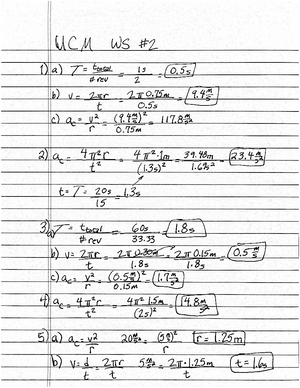 UCM WS #2
1) a) T = t_total / # rev = 1s / 2 = 0.5s
b) v = 2πr / t = 2π 0.75m / 0.5s = 9.4 m/s
c) a_c = v² / r = (9.4 m/s)² / 0.75m = 117.8 m/s²
2) a_c = 4π²r / t² = 4π² · 1m / (1.3s)² = 39.48m / 1.69s² = 23.4 m/s²
t = T = 20s / 15 = 1.3s
3) a) T = t_total / # rev = 60s / 33.33 = 1.8s
b) v = 2πr / t = / 1.8s = 2π 0.15m / 1.8s = 0.5 m/s
c) a_c = v² / r = (0.5 m/s)² / 0.15m = 1.7 m/s²
4) a_c = 4π²r / t² = 4π² 1.5m / (2s)² = 14.8 m/s²
5) a) a_c = v² / r 20 m/s² = (5 m/s)² / r r = 1.25m
b) v = d / t = 2πr / t 5 m/s = 2π · 1.25m / t t = 1.6s